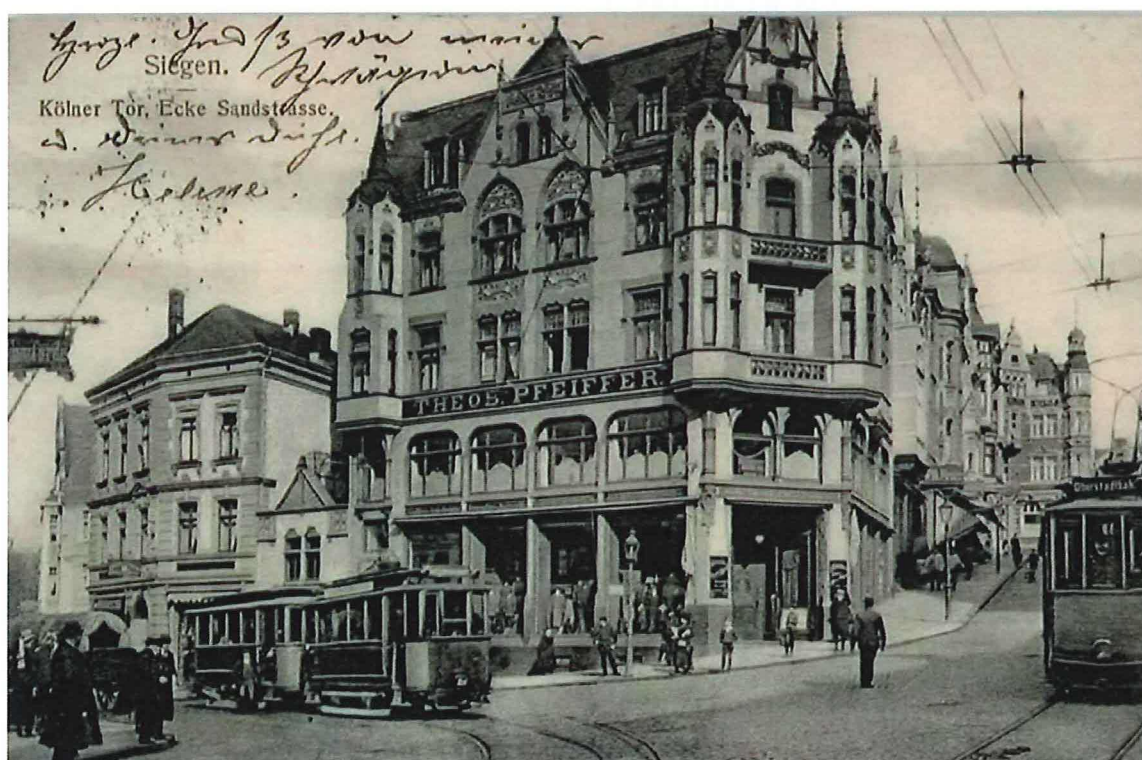 Herzl. Gruß von meiner
Siegen.
Schwägerin
Kölner Tor, Ecke Sandstrasse.
u. Deiner
Helene.
THEOD. PFEIFFER.
Oberstadtbah